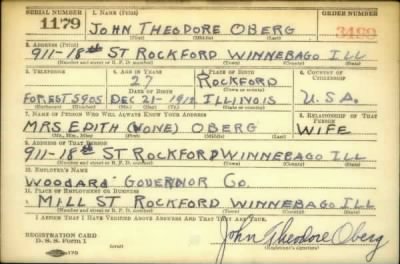 SERIAL NUMBER 1. NAME (Print) ORDER NUMBER
1179 JOHN THEODORE OBERG 3499
(First) (Middle) (Last)
2. ADDRESS (Print)
911-18th ST ROCKFORD WINNEBAGO ILL
(Number and street or R. F. D. number) (Town) (County) (State)
3. TELEPHONE 4. AGE IN YEARS 5. PLACE OF BIRTH 6. COUNTRY OF CITIZENSHIP
27 ROCKFORD
DATE OF BIRTH (Town or county)
FOREST 5905 DEC 21-1912 ILLINOIS U.S.A.
(Exchange) (Number) (Mo.) (Day) (Yr.) (State or country)
7. NAME OF PERSON WHO WILL ALWAYS KNOW YOUR ADDRESS 8. RELATIONSHIP OF THAT PERSON
MRS EDITH (NONE) OBERG WIFE
(Mr., Mrs., Miss) (First) (Middle) (Last)
9. ADDRESS OF THAT PERSON
911-18th ST ROCKFORD WINNEBAGO ILL
(Number and street or R. F. D. number) (Town) (County) (State)
10. EMPLOYER'S NAME
WOODARD GOVERNOR CO.
11. PLACE OF EMPLOYMENT OR BUSINESS
MILL ST ROCKFORD WINNEBAGO ILL
(Number and street or R. F. D. number) (Town) (County) (State)
I AFFIRM THAT I HAVE VERIFIED ABOVE ANSWERS AND THAT THEY ARE TRUE.
REGISTRATION CARD
D. S. S. Form 1 (over)
John Theodore Oberg
(Registrant's signature)